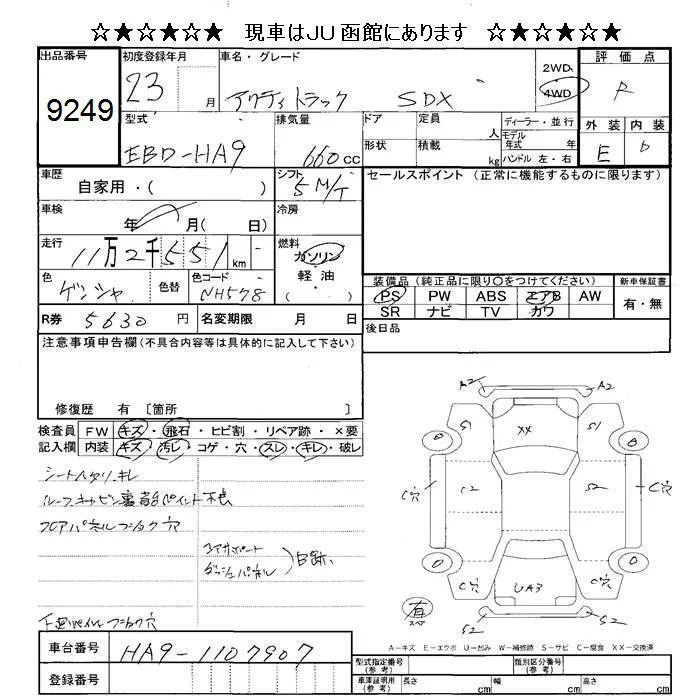 ☆★☆★☆ 現車はJU函館にあります ☆★☆★☆
出品番号 初度登録年月 車名・グレード 2WD 評価点
9249 23 月 アクティトラック SDX 4WD R
型式 排気量 ドア 定員 人 ディーラー・並行 外装 内装
EBD-HA9 660 cc 形状 積載 kg モデル年式 年 ハンドル 左・右 E D
車歴 自家用・( ) シフト 5 M/T セールスポイント (正常に機能するものに限ります)
車検 年 月( 日) 冷房
走行 11万2千551 km 燃料 ガソリン 軽油 ( )
色 ゲンシャ 色替 色コード NH578
装備品 (純正品に限り○をつけてください) 新車保証書
PS PW ABS エアB AW 有・無
SR ナビ TV カワ
R券 5630 円 名変期限 月 日 後日品
注意事項申告欄(不具合内容等は具体的に記入して下さい)
修復歴 有 〔箇所 〕
検査員 FW キズ・飛石・ヒビ割・リペア跡・×要
記入欄 内装 キズ・汚レ・コゲ・穴・スレ・キレ・破レ
シートヘタリ・キレ
フロアパネルフショク穴
コアサポート
ダッシュパネル
フショク穴
A2 A2
S1 S1
XX
C穴 C2 S2 C穴
C穴 UA3 C穴
S2 S2
有
スペア
A-キズ E-エクボ U-凹み W-補修跡 S-サビ C-腐食 XX-交換済
車台番号 HA9-1107907
登録番号
型式指定番号(参考) 類別区分番号(参考)
車庫証明用(参考) 長さ cm 幅 cm 高さ cm